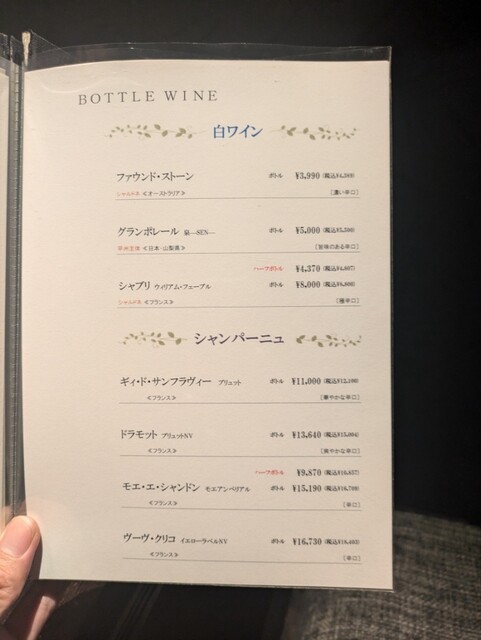 BOTTLE WINE
白ワイン
ファウンド・ストーン ボトル ¥3,990
シャルドネ ≪オーストラリア≫ [濃い辛口]
グランポレール ボトル ¥5,000
甲州主体 ≪日本・山梨県≫ [旨味のある辛口]
ハーフボトル ¥4,370
シャブリ ウィリアム・フェーブル ボトル ¥8,000
シャルドネ ≪フランス≫ [極辛口]
シャンパーニュ
ギィ・ド・サンフラヴィー ブリュット ボトル ¥11,000 (税込¥12,100)
≪フランス≫ [華やかな辛口]
ドラモット ブリュットNV ボトル ¥13,640 (税込¥15,004)
≪フランス≫ [爽やかな辛口]
ハーフボトル ¥9,870 (税込¥10,857)
モエ・エ・シャンドン モエアンペリアル ボトル ¥15,190 (税込¥16,709)
≪フランス≫ [辛口]
ヴーヴ・クリコ イエローラベルNV ボトル ¥16,730 (税込¥18,403)
≪フランス≫ [辛口]